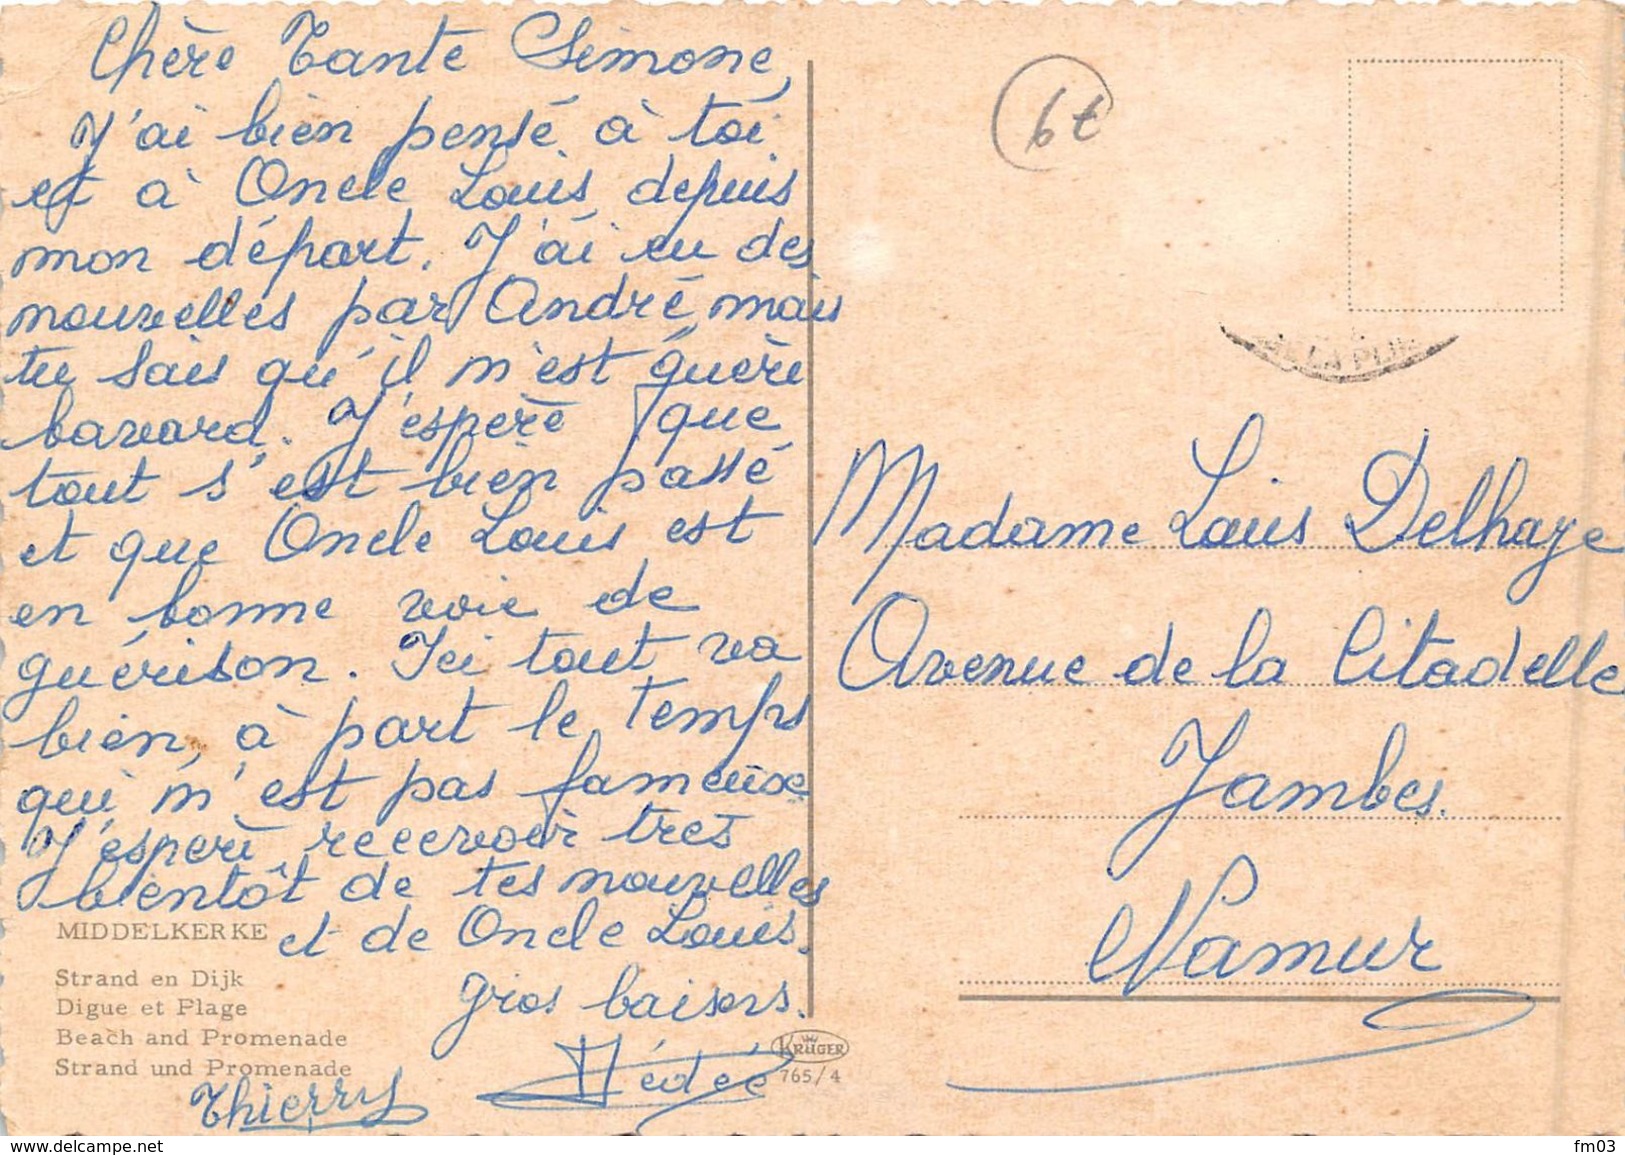 Chère Tante Simone,
J'ai bien pensé à toi
et à Oncle Louis depuis
mon départ. J'ai eu des
nouvelles par André mais
tu sais qu'il n'est guère
bavard. J'espère que
tout s'est bien passé
et que Oncle Louis est
en bonne voie de
guérison. Ici tout va
bien, à part le temps
qui n'est pas fameux
J'espère recevoir très
bientôt de tes nouvelles
et de Oncle Louis.
gros baisers.
Dédée
Thierry
MIDDELKERKE
Strand en Dijk
Digue et Plage
Beach and Promenade
Strand und Promenade
KRÜGER
765/4
6t
Madame Louis Delhaye
Avenue de la Citadelle
Jambes.
Namur
www.delcampe.net
fm03